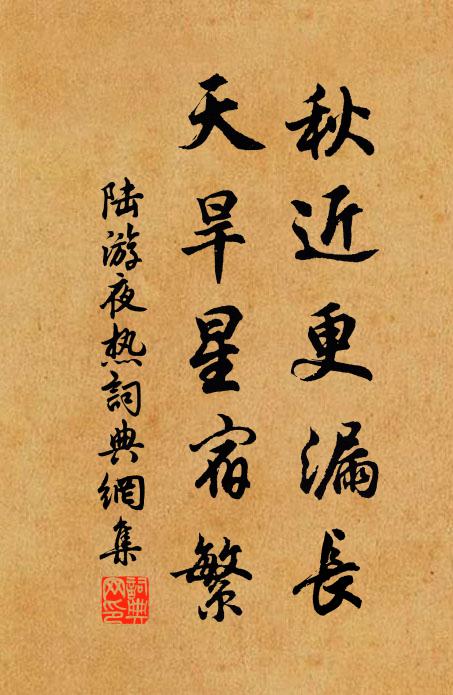 秋近更漏長
天旱星宿繁
陆游夜热詞典網集
詞典网印